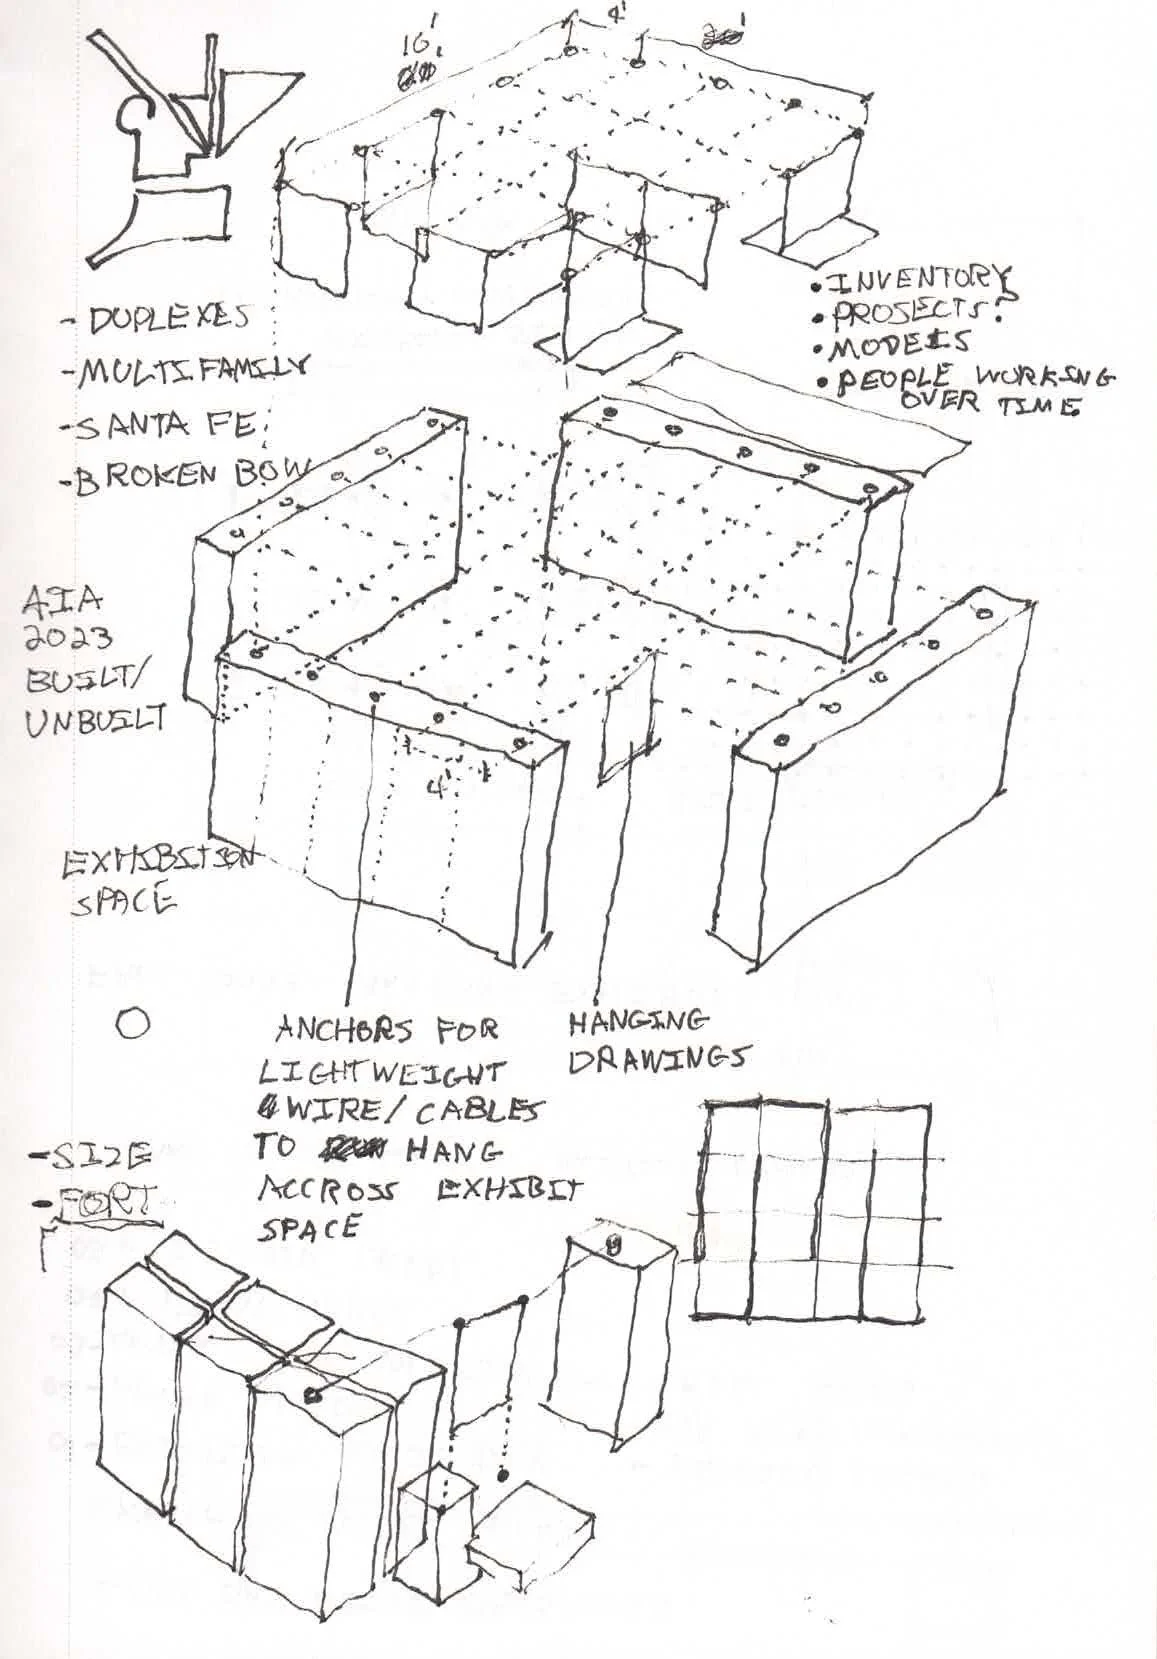 16'
4'
- DUPLEXES
- MULTIFAMILY
- SANTA FE
- BROKEN BOW
• INVENTORY
• PROJECTS?
• MODELS
• PEOPLE WORKING
OVER TIME
AIA
2023
BUILT/
UNBUILT
4'
EXHIBITION
SPACE
ANCHORS FOR
LIGHTWEIGHT
WIRE/CABLES
TO HANG
ACCROSS EXHIBIT
SPACE
HANGING
DRAWINGS
- SIZE
- FORT